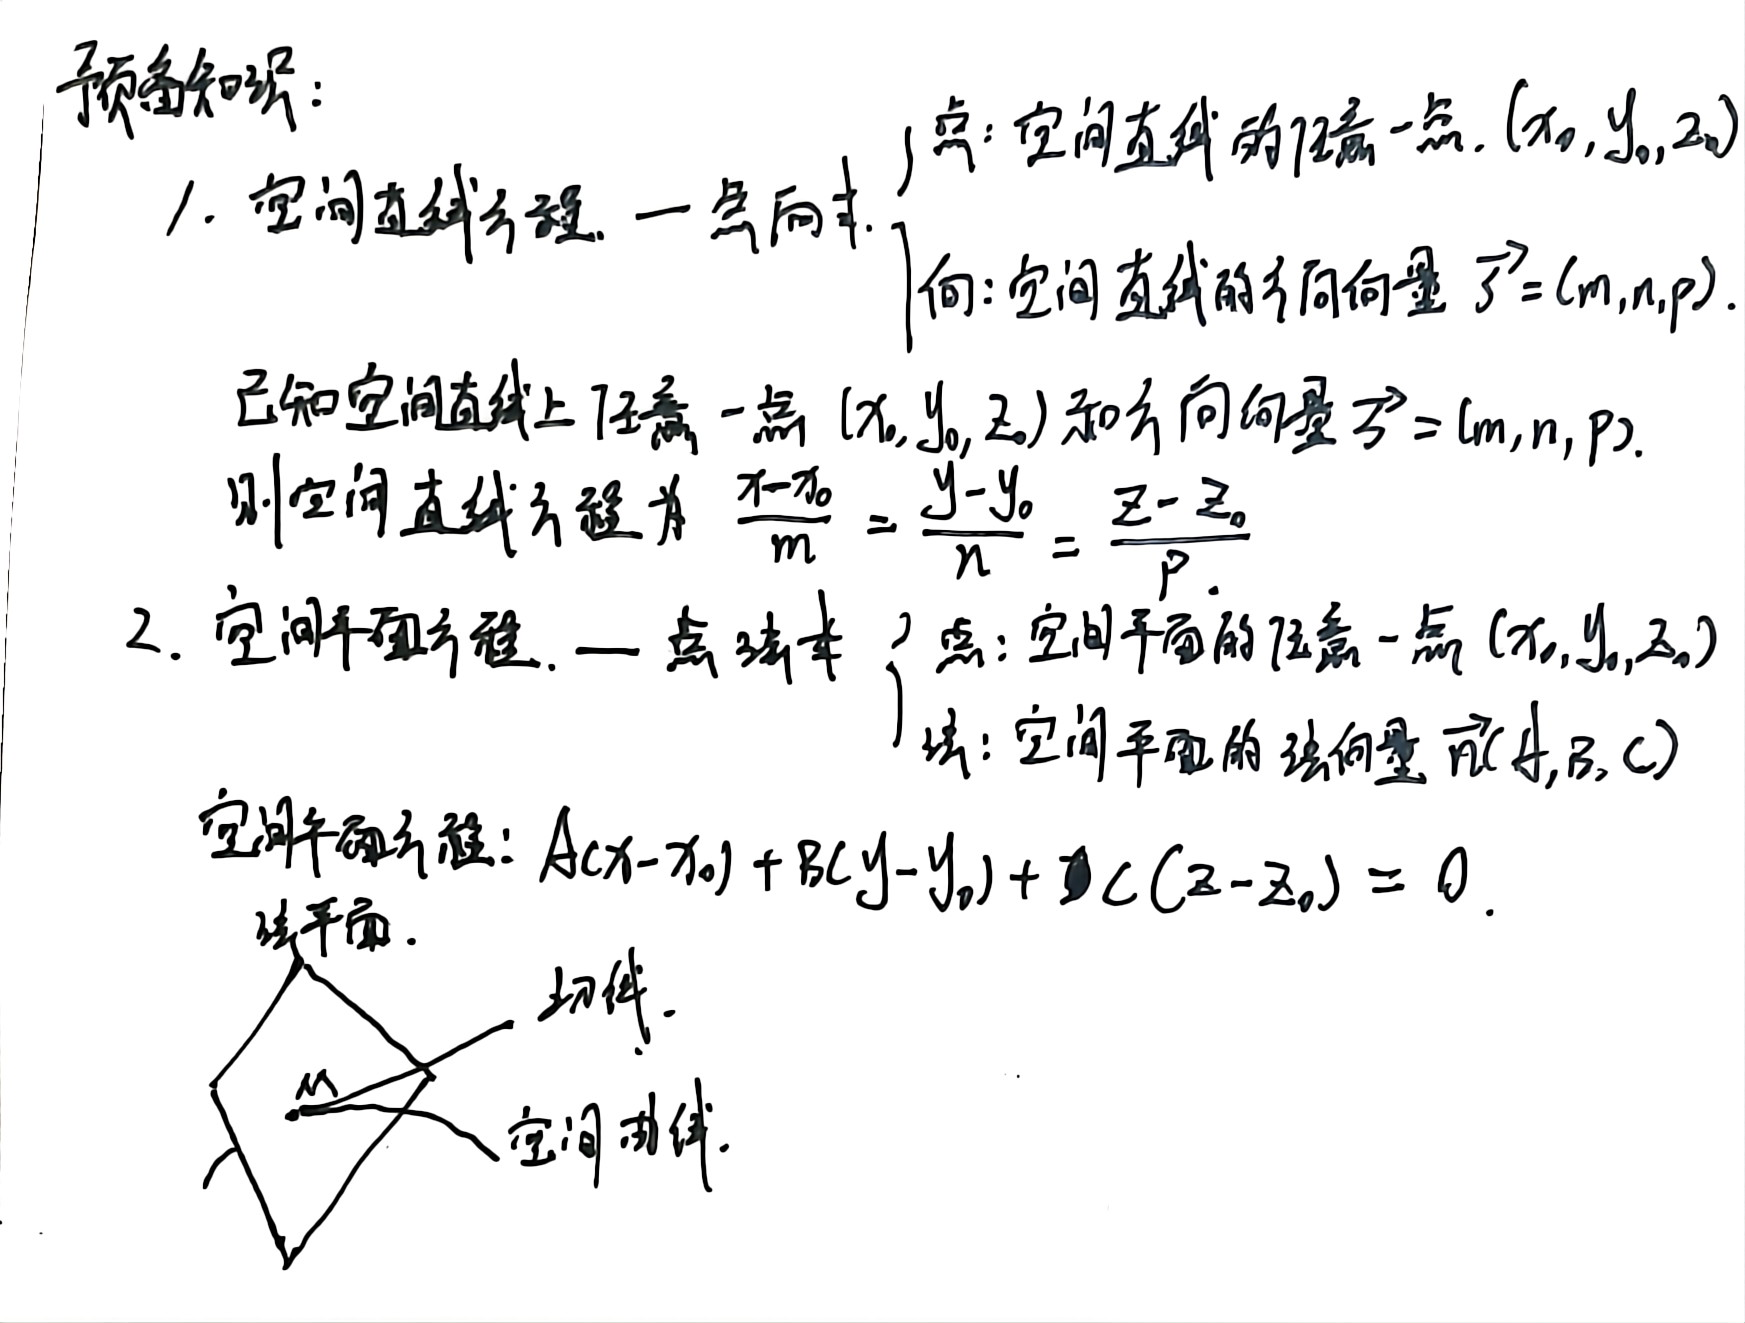 预备知识:
点: 空间直线的任意一点. (x₀, y₀, z₀)
1. 空间直线方程. — 点向式.
向: 空间直线的方向向量 s⃗=(m,n,p).
已知空间直线上任意一点 (x₀, y₀, z₀) 和方向向量 s⃗=(m,n,p).
则空间直线方程为 (x-x₀)/m = (y-y₀)/n = (z-z₀)/p.
2. 空间平面方程. — 点法式 { 点: 空间平面的任意一点 (x₀, y₀, z₀)
法: 空间平面的法向量 n⃗(A, B, C)
空间平面方程: A(x-x₀) + B(y-y₀) + C(z-z₀) = 0.
法平面.
切线.
M
空间曲线.